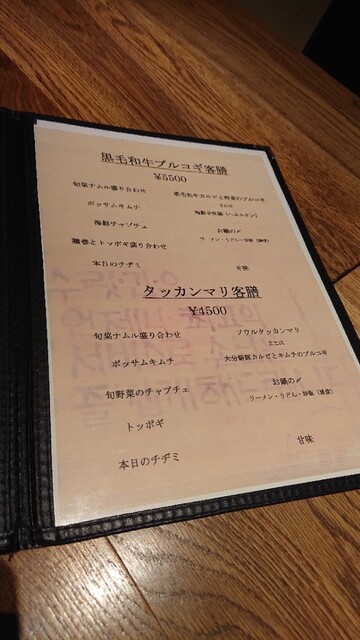 黒毛和牛プルコギ客膳
¥5500
旬菜ナムル盛り合わせ
ポッサムキムチ
海鮮チャプチェ
麺巻とトッポギ盛り合わせ
本日のチヂミ
黒毛和牛カルビと野菜のプルコギ
または
お鍋の〆
ラーメン・うどん・炒飯（雑炊）
甘味
タッカンマリ客膳
¥4500
旬菜ナムル盛り合わせ
ポッサムキムチ
旬野菜のチャプチェ
トッポギ
本日のチヂミ
ソウルタッカンマリ
または
大分県豚カルビとキムチのプルコギ
お鍋の〆
ラーメン・うどん・炒飯（雑炊）
甘味